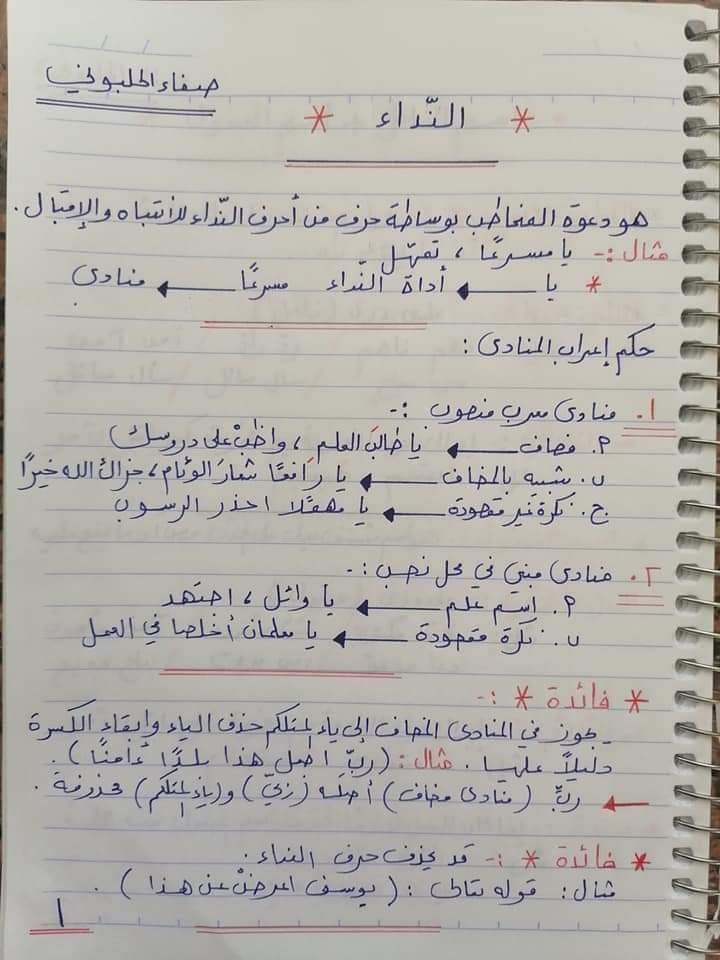 صفاء الحلبوني
* النّداء *
هو دعوة المخاطب بوساطة حرف من أحرف النّداء للأنتباه والإقبال.
مثال :- يا مسرعًا ، تمهّل
* يا ← أداة النّداء مسرعًا ← منادى
حكم إعراب المنادى :
١. منادى معرب منصوب :-
٢. مضاف ← يا طالبَ العلم ، واظبْ على دروسك
ب. شبيه بالمضاف ← يا رافعًا شعارَ الوئام ، جزاك الله خيرًا
ج. نكرة غير مقصودة ← يا مهملًا احذر الرسوب
٢. منادى مبني في محل نصب :-
٢. اسم علم ← يا وائل ، اجتهد
ب. نكرة مقصودة ← يا معلمان أخلصا في العمل
* فائدة * :-
يجوز في المنادى المضاف إلى ياء المتكلم حذف الياء وإبقاء الكسرة
دليلاً عليها . مثال : (ربِّ اجعل هذا بلدًا ءامنًا) .
← ربِّ (منادى مضاف) أصله (ربّي) و(ياء المتكلم) محذوفة .
* فائدة * :- قد يحذف حرف النداء .
مثال : قوله تعالى : (يوسف اعرضْ عن هذا) .
١